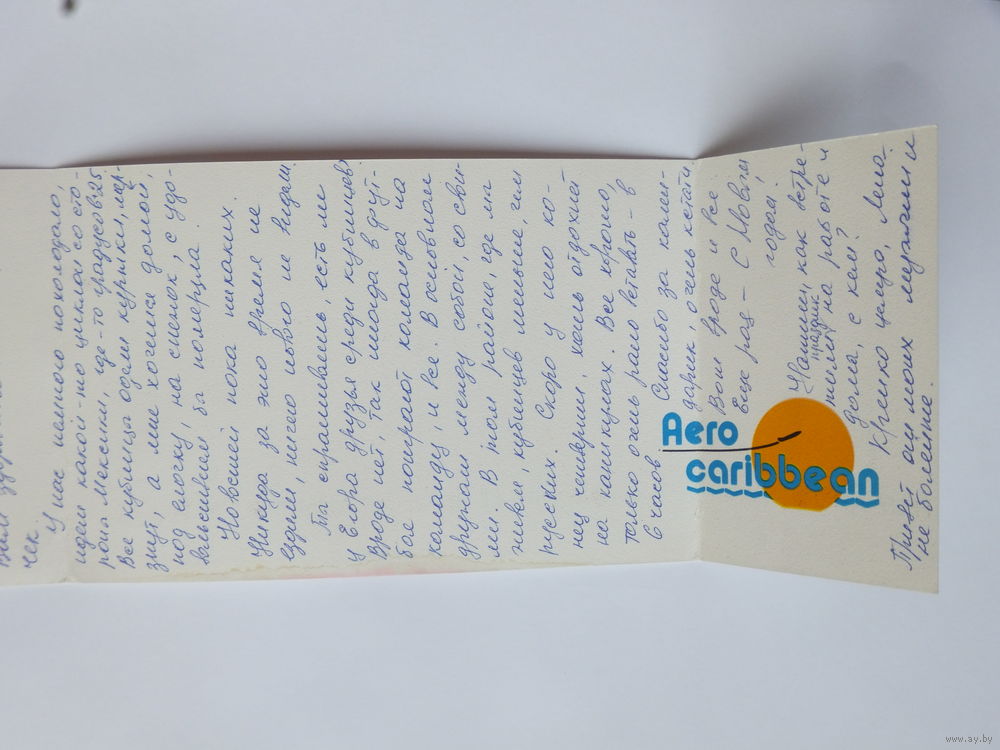 чек.
У нас немного похолодало,
идёт какой-то циклон со сто-
роны Мексики, где-то градусов 25.
Все кубинцы одели куртки, мёр-
знут, а мне хочется домой,
под ёлочку, на снежок, с удо-
вольствием бы помёрзла.
Новостей пока никаких.
Никуда за это время не
ездили, ничего нового не видели.
Ты спрашиваешь, есть ли
у Егора друзья среди кубинцев?
Вроде нет, так иногда в фут-
бол поиграют команда на
команду, и все. В основном
дружат между собой, со свои-
ми. В том районе, где мы
живём, кубинцев меньше, чем
русских. Скоро у него ко-
нец четверти, хоть отдохнёт
на каникулах. Все хорошо,
только очень рано вставать - в
6 часов
Спасибо за кален-
дарик, очень кстати.
Вот вроде и все.
Еще раз - С Новым
годом!
Напиши, как встре-
тили праздник на работе и
дома, с кем?
Крепко целую, Мила.
Привет от моих мужчин и
не болейте.
Aero
caribbean
www.ay.by